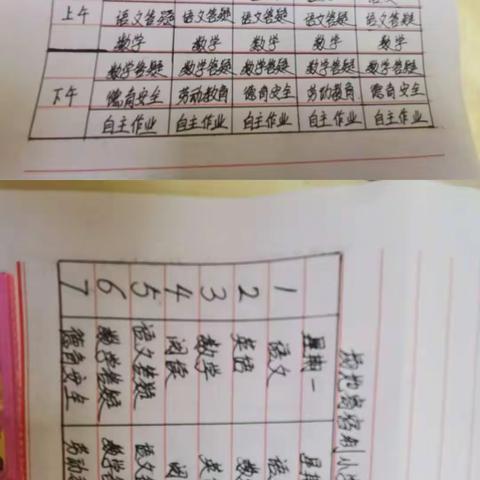 上午 语文答疑 语文答疑 语文答疑 语文答疑 语文答疑
数学 数学 数学 数学 数学
数学答疑 数学答疑 数学答疑 数学答疑 数学答疑
下午 德育安全 劳动教育 德育安全 劳动教育 德育安全
自主作业 自主作业 自主作业 自主作业 自主作业
星期一
1 语文
2 英语
3 数学
4 阅读
5 语文答疑
6 数学答疑
7 德育安全